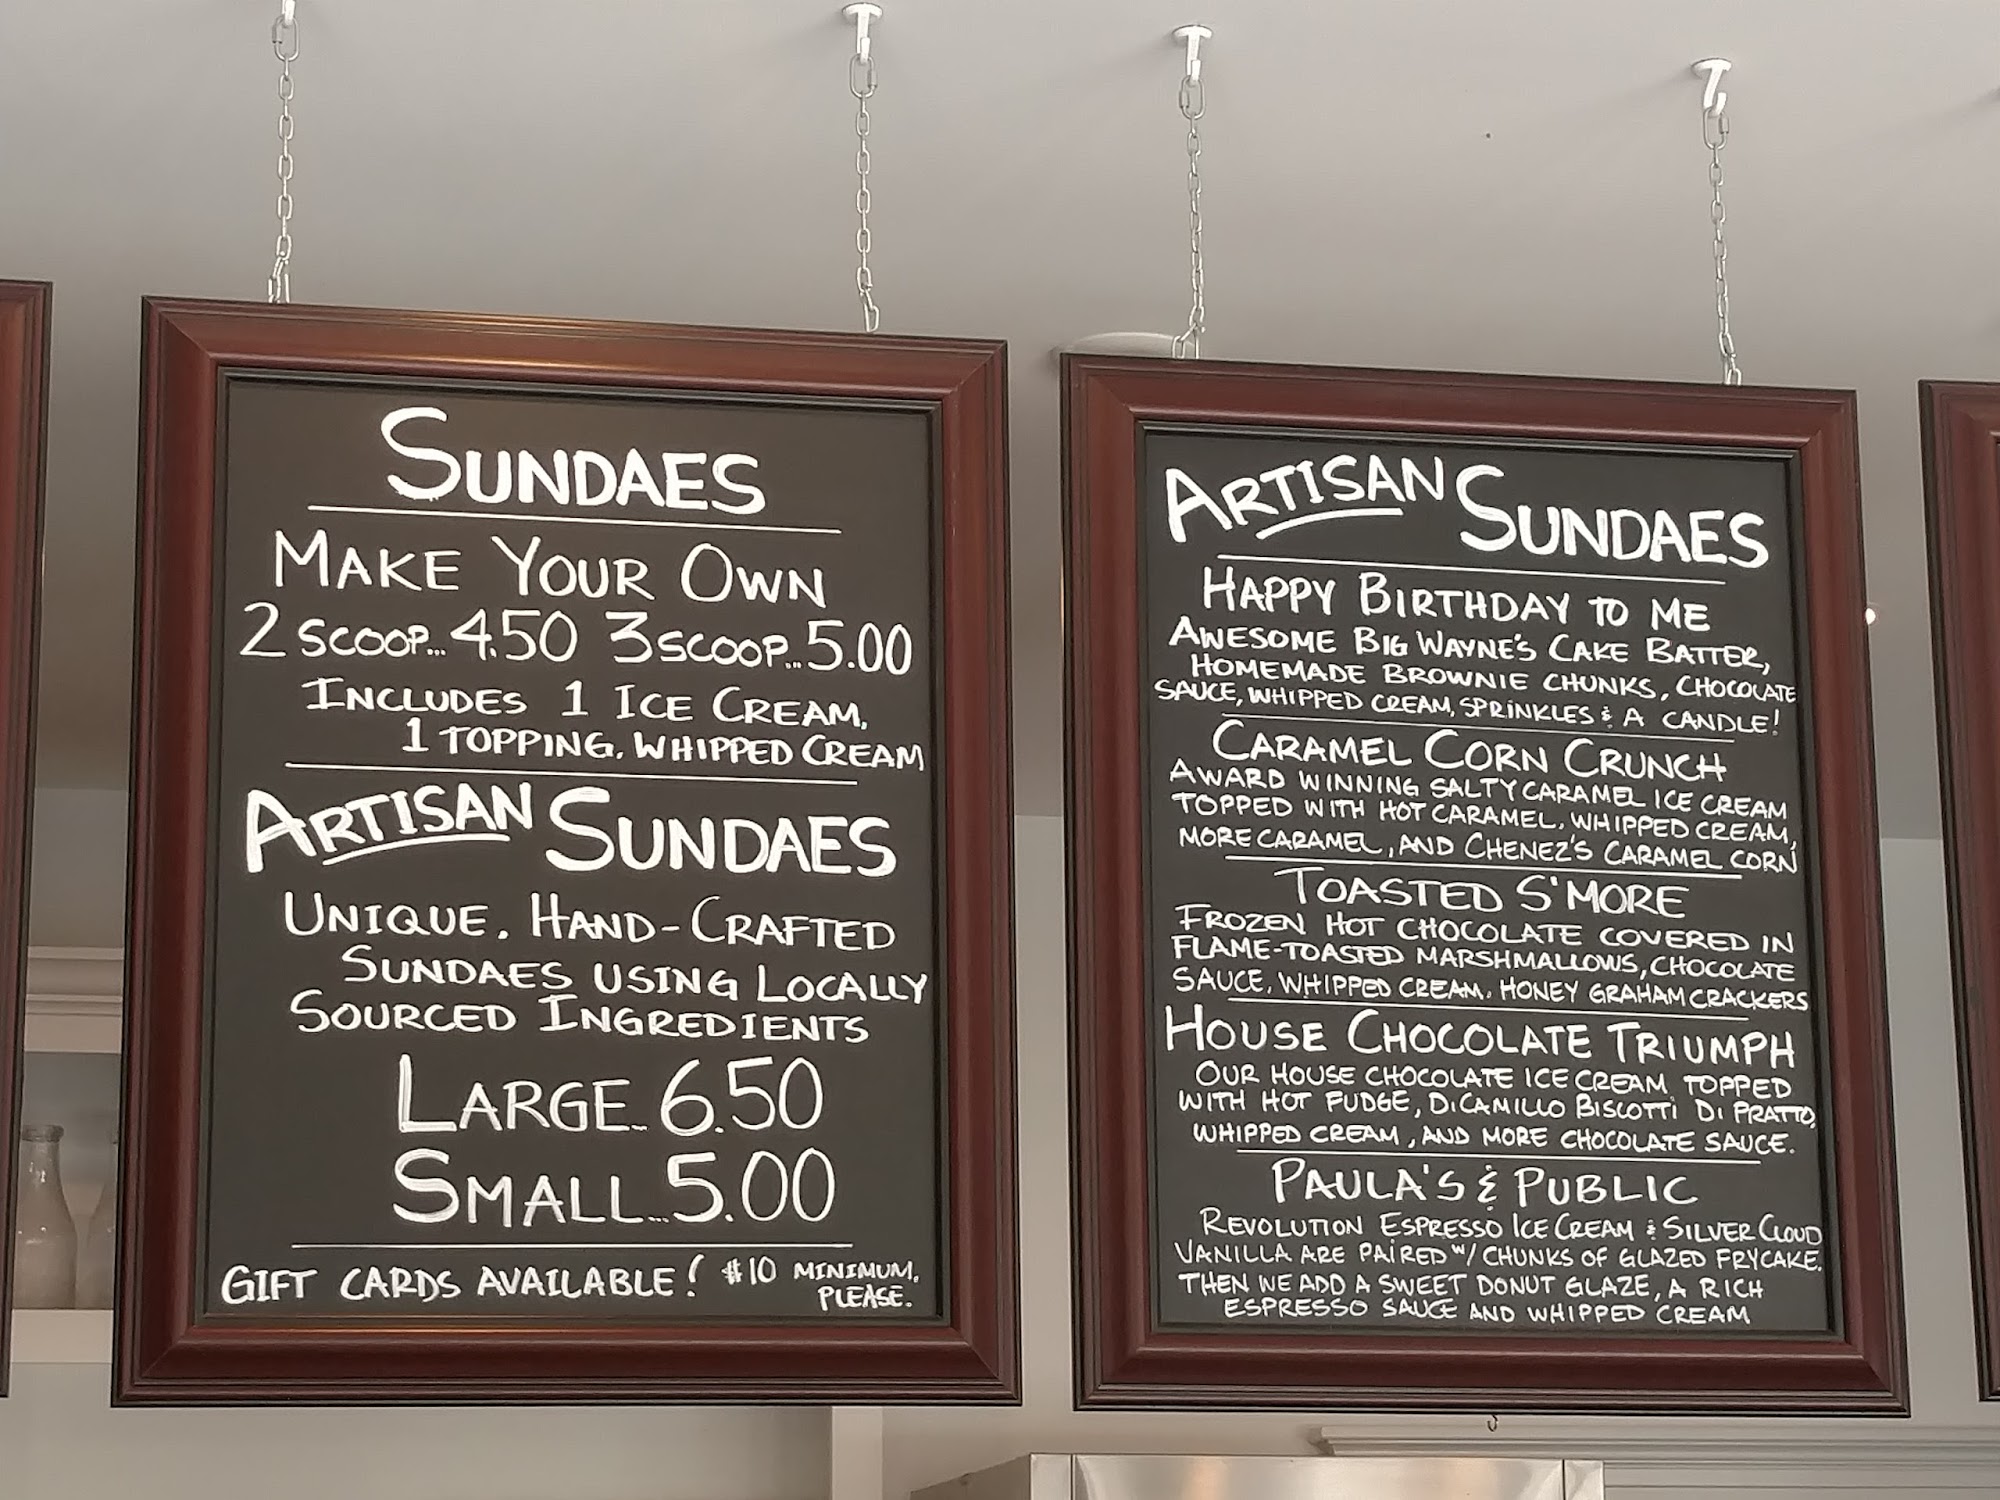 SUNDAES
MAKE YOUR OWN
2 SCOOP... 4.50 3 SCOOP... 5.00
INCLUDES 1 ICE CREAM,
1 TOPPING, WHIPPED CREAM
ARTISAN SUNDAES
UNIQUE, HAND-CRAFTED
SUNDAES USING LOCALLY
SOURCED INGREDIENTS
LARGE.. 6.50
SMALL... 5.00
GIFT CARDS AVAILABLE! $10 MINIMUM,
PLEASE.
ARTISAN SUNDAES
HAPPY BIRTHDAY TO ME
AWESOME BIG WAYNE'S CAKE BATTER,
HOMEMADE BROWNIE CHUNKS, CHOCOLATE
SAUCE, WHIPPED CREAM, SPRINKLES & A CANDLE!
CARAMEL CORN CRUNCH
AWARD WINNING SALTY CARAMEL ICE CREAM
TOPPED WITH HOT CARAMEL, WHIPPED CREAM,
MORE CARAMEL, AND CHENEZ'S CARAMEL CORN
TOASTED S'MORE
FROZEN HOT CHOCOLATE COVERED IN
FLAME-TOASTED MARSHMALLOWS, CHOCOLATE
SAUCE, WHIPPED CREAM, HONEY GRAHAM CRACKERS
HOUSE CHOCOLATE TRIUMPH
OUR HOUSE CHOCOLATE ICE CREAM TOPPED
WITH HOT FUDGE, DICAMILLO BISCOTTI DI PRATTO,
WHIPPED CREAM, AND MORE CHOCOLATE SAUCE.
PAULA'S & PUBLIC
REVOLUTION ESPRESSO ICE CREAM & SILVER CLOUD
VANILLA ARE PAIRED W/ CHUNKS OF GLAZED FRYCAKE.
THEN WE ADD A SWEET DONUT GLAZE, A RICH
ESPRESSO SAUCE AND WHIPPED CREAM